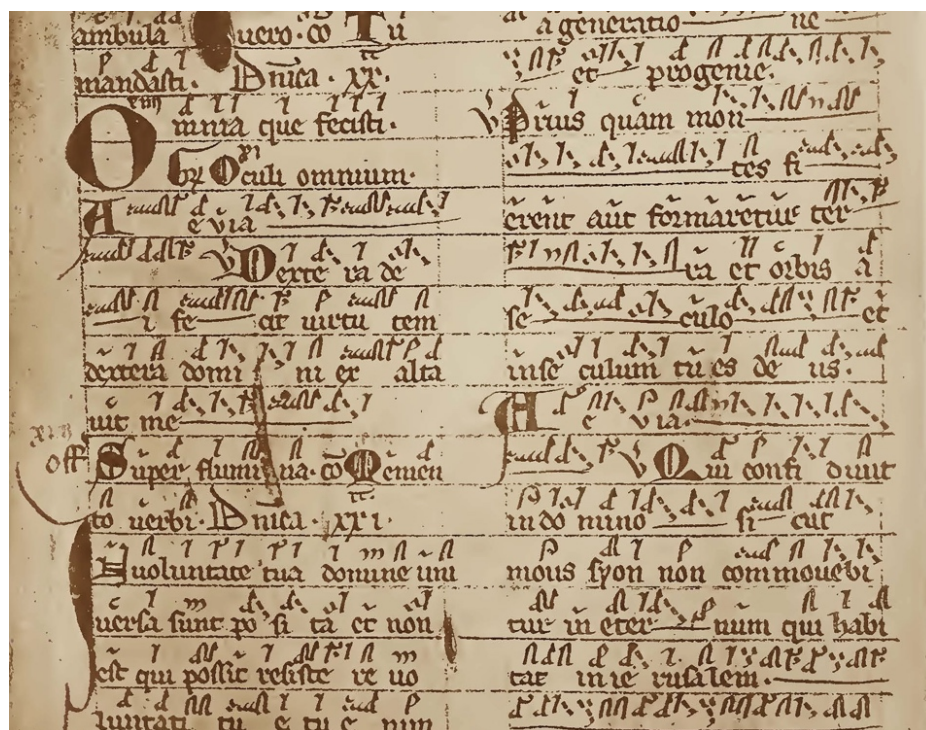 ambula uero. co Tu
mandasti. Dnica. xx.
Omnia que fecisti.
Oculi omnium.
A e via
V Dexte ra de
i fe cit uirtu tem
dextera domi ni ex alta
uit me
off Super flumi na. co Memen
to uerbi. Dnica. xxi.
In uoluntate tua domine uni
uersa sunt po si ta et non
est qui possit resiste re uo
luntati tu e tu e nim
a generatio ne
et progenie.
V Prius quam mon
tes fi
erent aut formaretur ter
ra et orbis a
se culo et
in se culum tu es de us.
A e via.
V Qui confi dunt
in do mino si cut
mons syon non commouebi
tur in eter num qui habi
tat in ie rusalem.